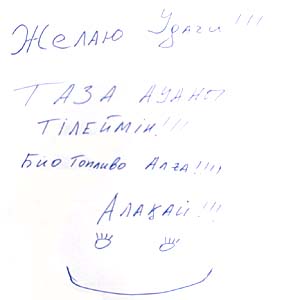 Желаю Удачи!!!
ТАЗА АУАНЫ
ТІЛЕЙМІН!!!
Био Топливо Алға!!!!
Алақай!!!